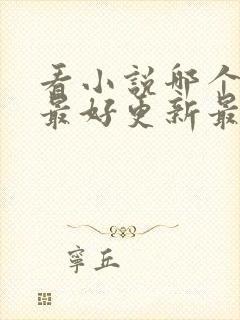 看小說哪个
最好更新最
寧丘